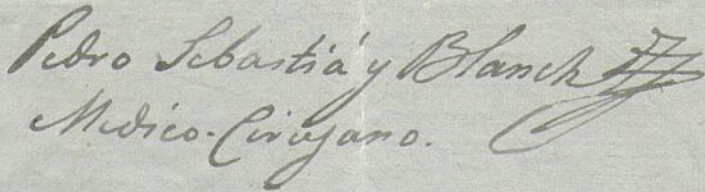 Pedro Sebastiá y Blanch
Medico-Cirujano.